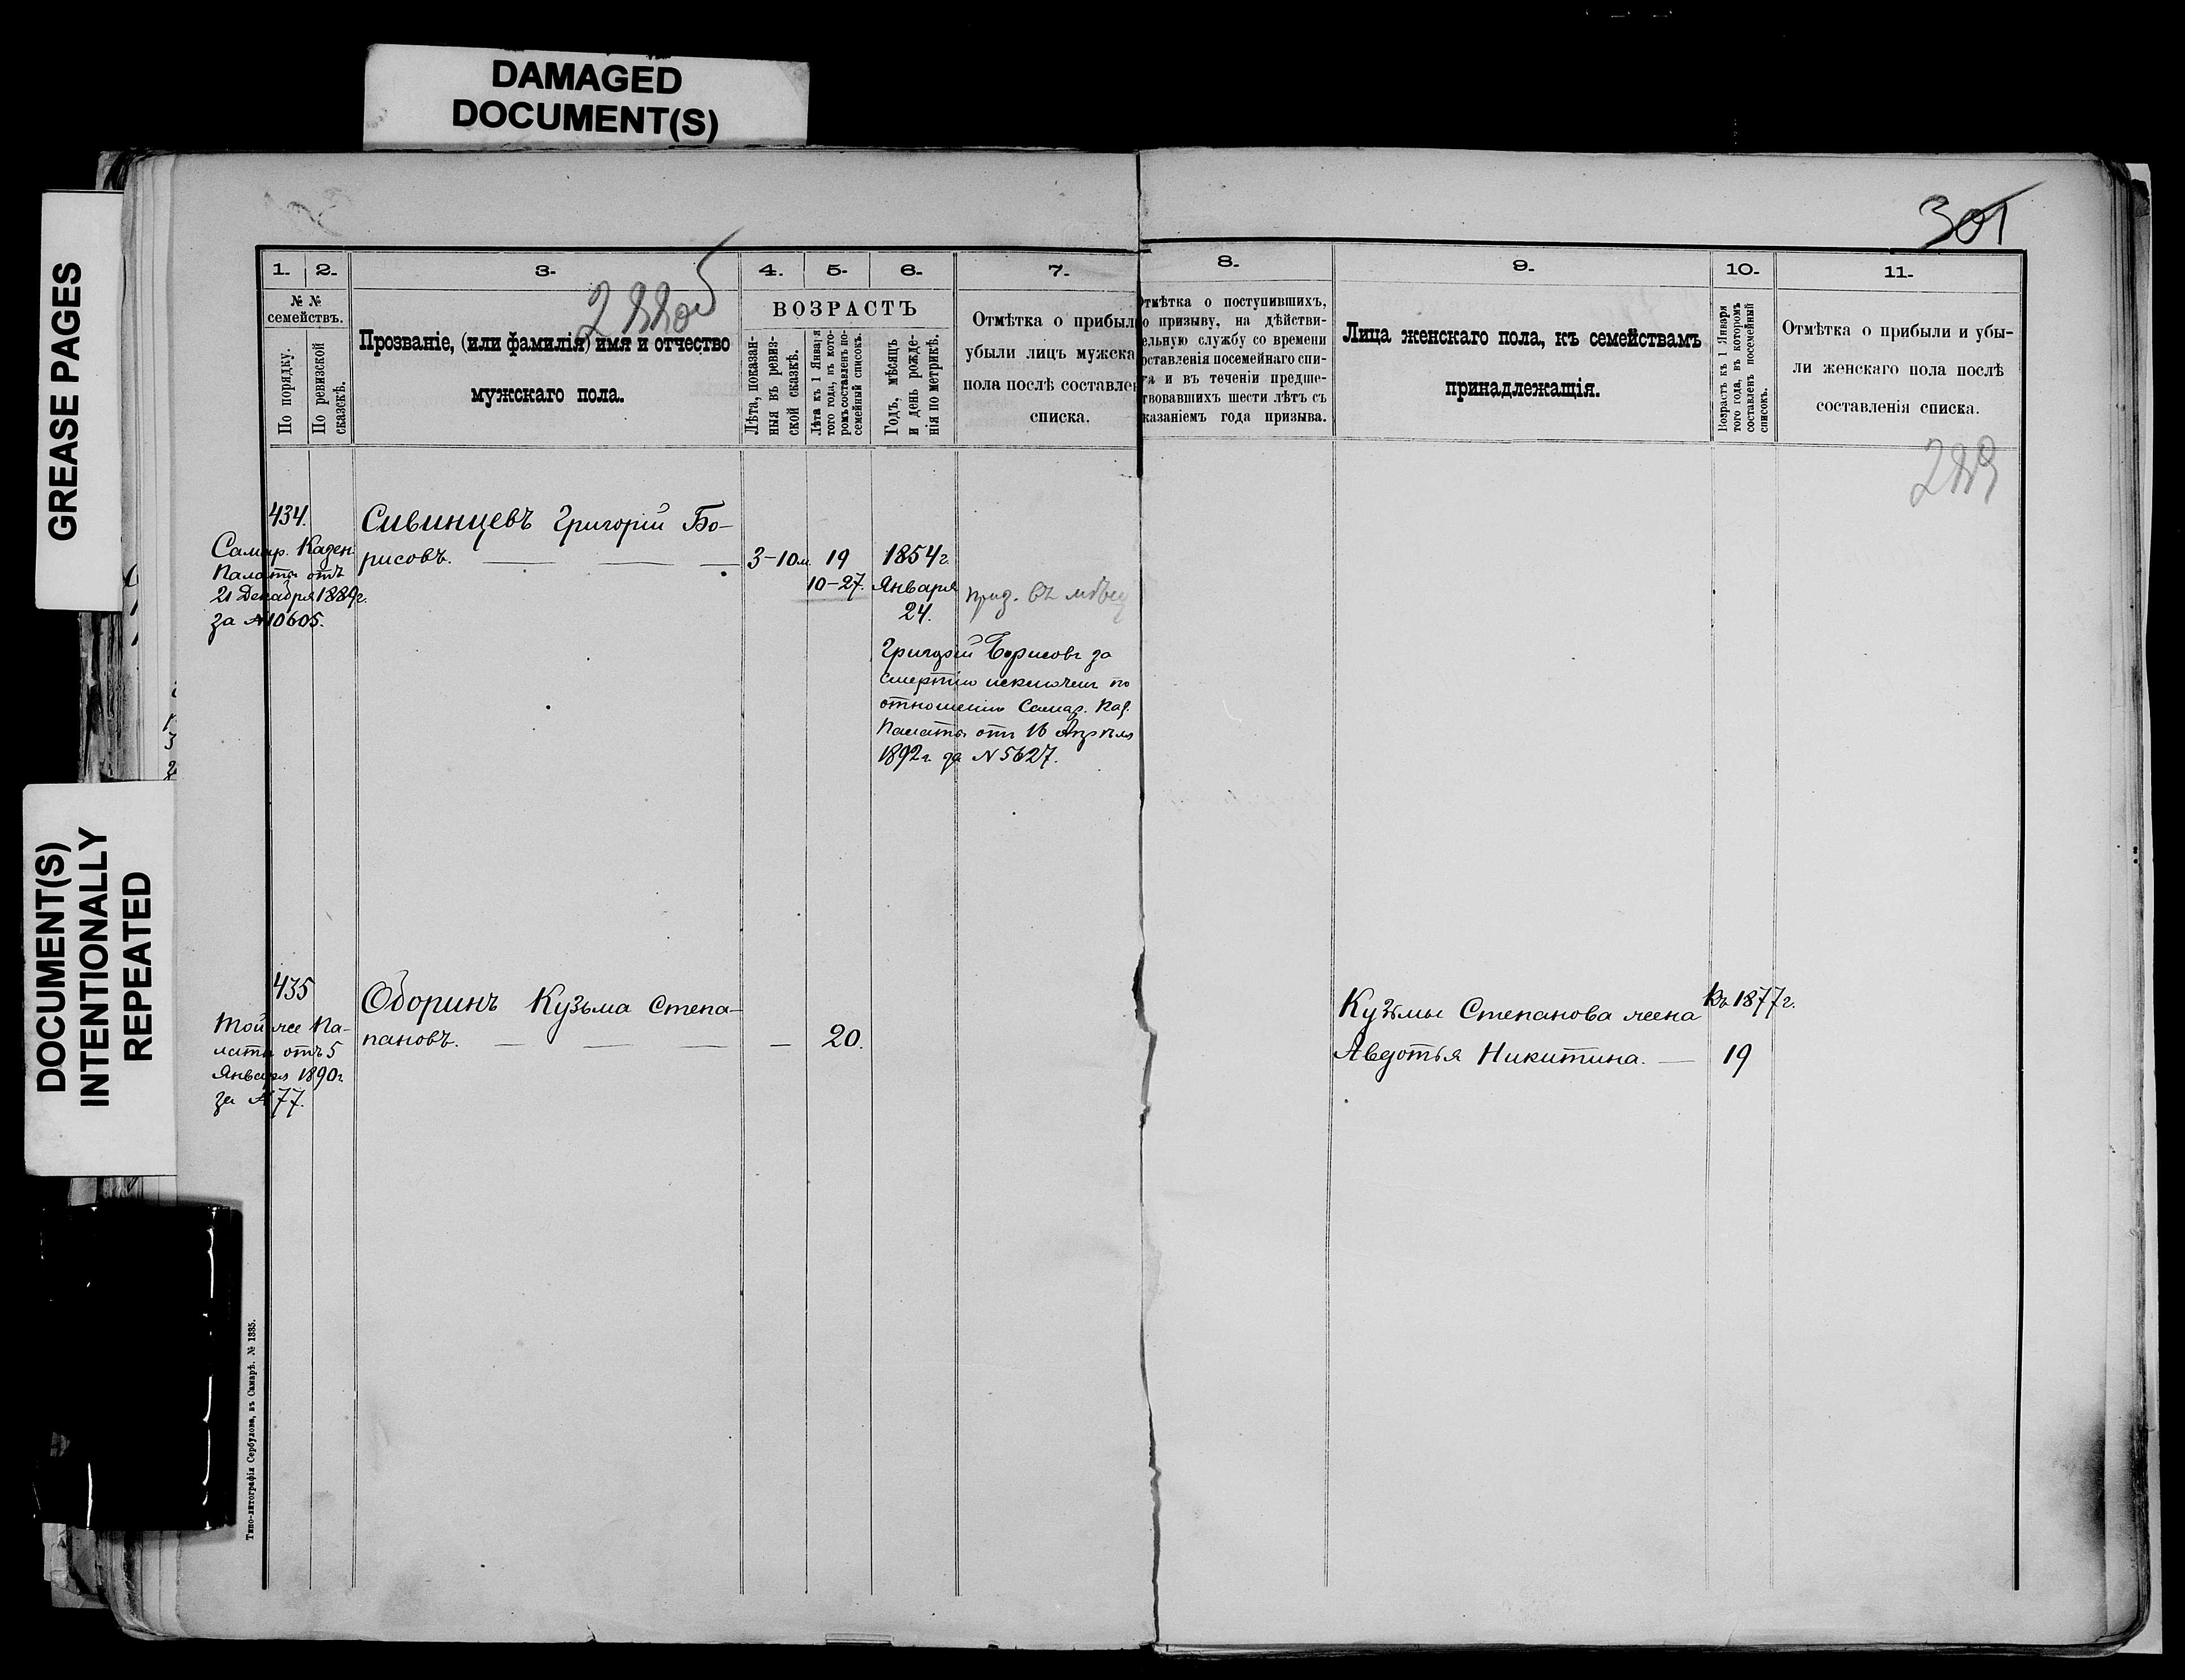 DAMAGED
DOCUMENT(S)
GREASE PAGES
DOCUMENT(S)
INTENTIONALLY
REPEATED
301
288об
289
1.
2.
3.
4.
5.
6.
7.
8.
9.
10.
11.
№ №
семействъ.
По порядку.
По ревизской
сказскѣ.
Прозваніе, (или фамилія) имя и отчество
мужскаго пола.
ВОЗРАСТЪ
Лѣта, показан-
ныя въ ревиз-
ской сказкѣ.
Лѣта къ 1 Января
того года, въ кото-
ромъ составленъ по-
семейный списокъ.
Годъ, мѣсяцъ
и день рожде-
нія по метрикѣ.
Отмѣтка о прибыл
убыли лицъ мужска
пола послѣ составле
списка.
Отмѣтка о поступившихъ,
о призыву, на дѣйстви-
ельную службу со времени
оставленія посемейнаго спи-
а и въ теченіи предше-
твовавшихъ шести лѣтъ съ
казаніемъ года призыва.
Лица женскаго пола, къ семействамъ
принадлежащія.
Возрастъ къ 1 Января
того года, въ которомъ
составленъ посемейный
списокъ.
Отмѣтка о прибыли и убы-
ли женскаго пола послѣ
составленія списка.
434.
Самар. Казен.
Палаты отъ
21 Декабря 1889г.
за №10605.
Сивинцевъ Григорій Бо-
рисовъ.
3-10м.
19
10-27.
1854г.
Января
24.
Григорій Борисовъ за
смертію исключенъ по
отношенію Самар. Каз.
Палаты отъ 16 Апрѣля
1892г. за №5627.
435
Той же Па-
латы отъ 5
Января 1890г.
за №77.
Оборинъ Кузьма Степа-
пановъ.
—
20.
Кузьмы Степанова жена
Авдотья Никитина.
Въ 1877г.
19
Типо-литографія Сербулова, въ Самарѣ. № 1335.